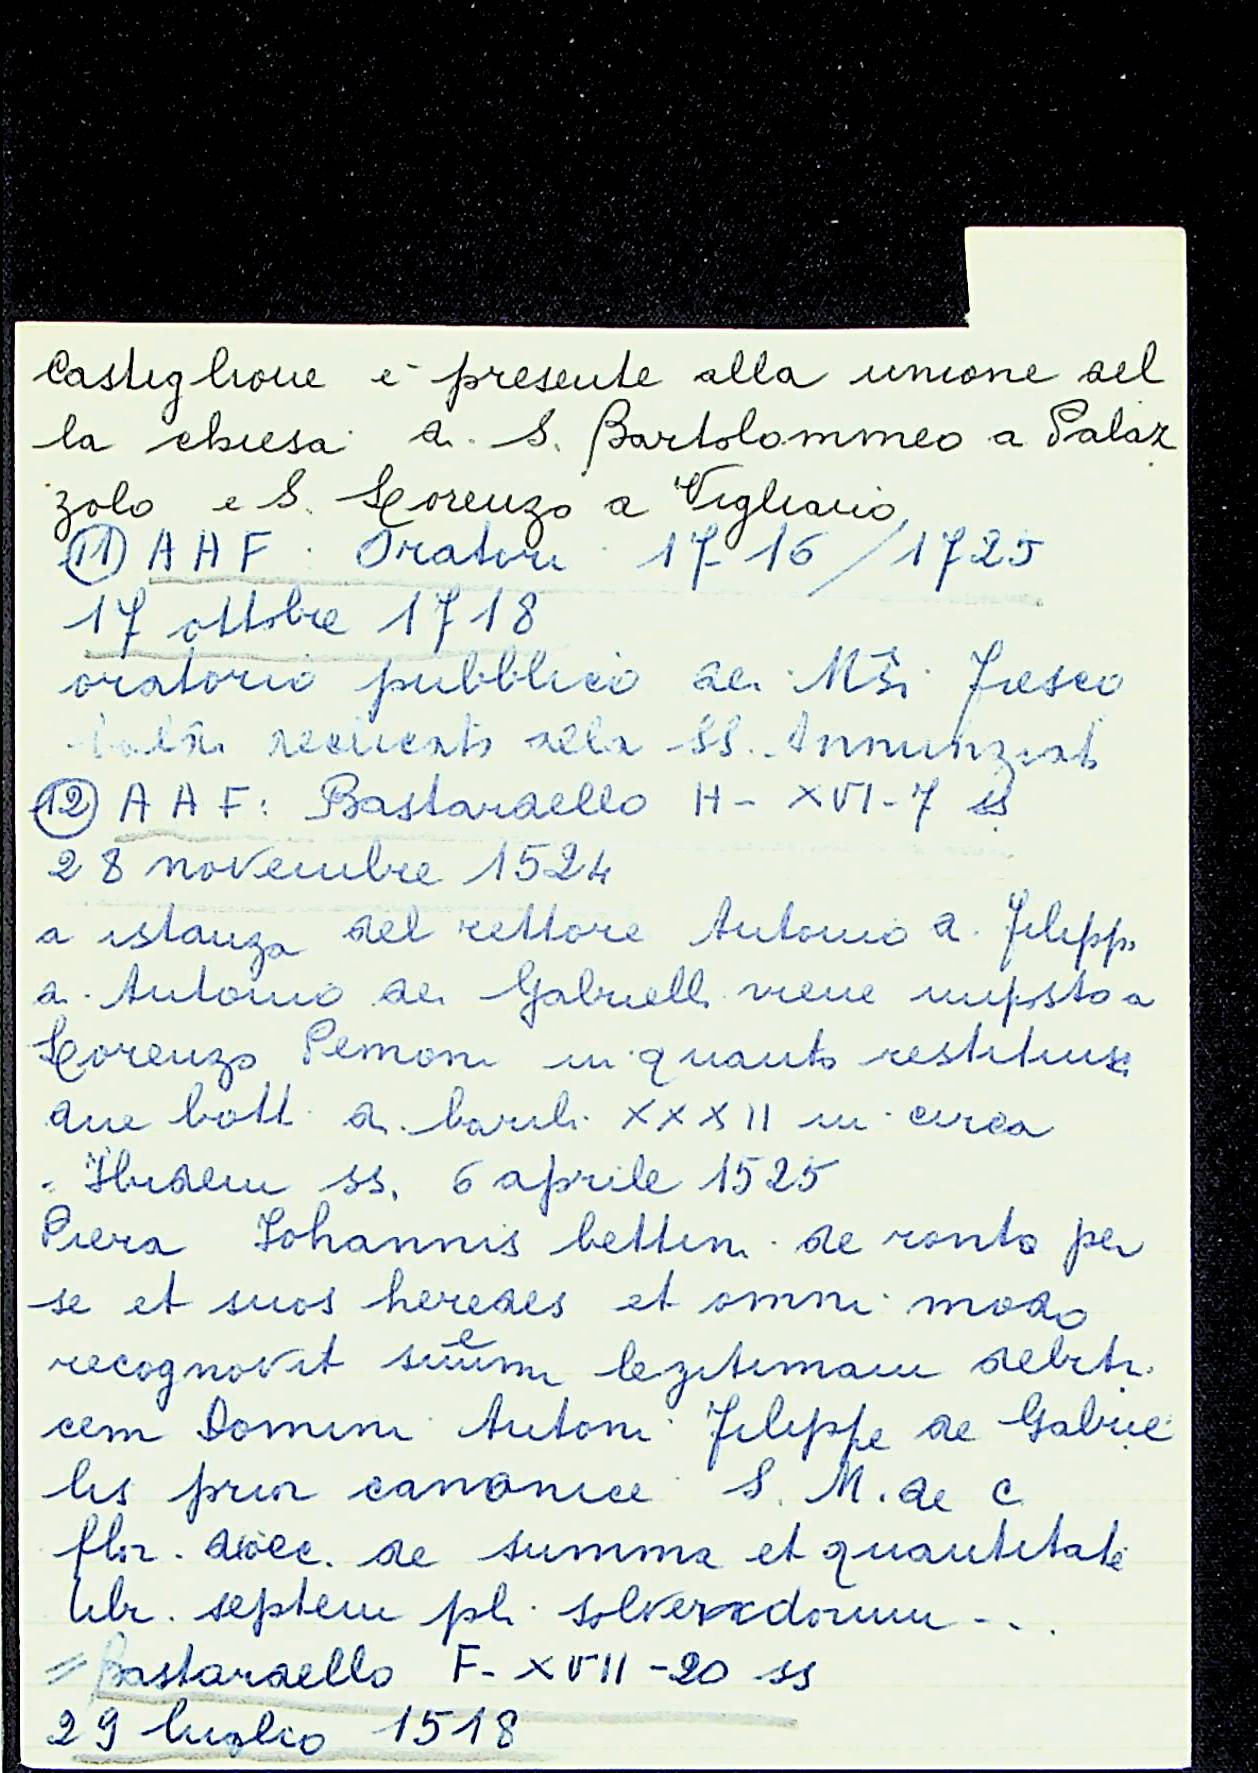 Castiglione è presente alla unione del
la chiesa di S. Bartolommeo a Palaz
zolo e S. Lorenzo a Vigliano
(11) A A F : Oratori 17-16/1725
17 ottobre 1718
oratorio pubblico dei MSi. Fresco
dedicato alla SS. Annunziat
(12) A A F: Bastardello H - XVI-7 ss
28 novembre 1524
a istanza del rettore Antonio di Filippo
di Antonio dei Gabrielli viene imposto a
Lorenzo Pemoni in quanto restituisc
due botti di barili XXXII in circa
. Ibidem ss. 6 aprile 1525
Piera Johannis bettini de ronta per
se et suos heredes et omni modo
recognovit legitimam debitri
cem Domini Antoni Filippe de Gabrie
lis prior canonice S. M. de C
flor. dioec. de summa et quantitate
libr. septem pli solverxdorum - ..
= Bastardello F- XVII -20 ss
29 luglio 1518